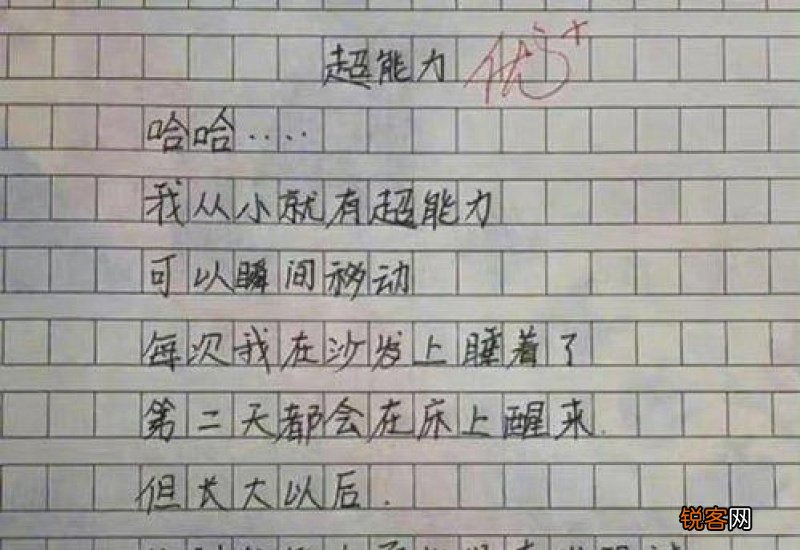 超能力 优+
哈哈····
我从小就有超能力
可以瞬间移动
每次我在沙发上睡着了
第二天都会在床上醒来.
但长大以后.
锐客网